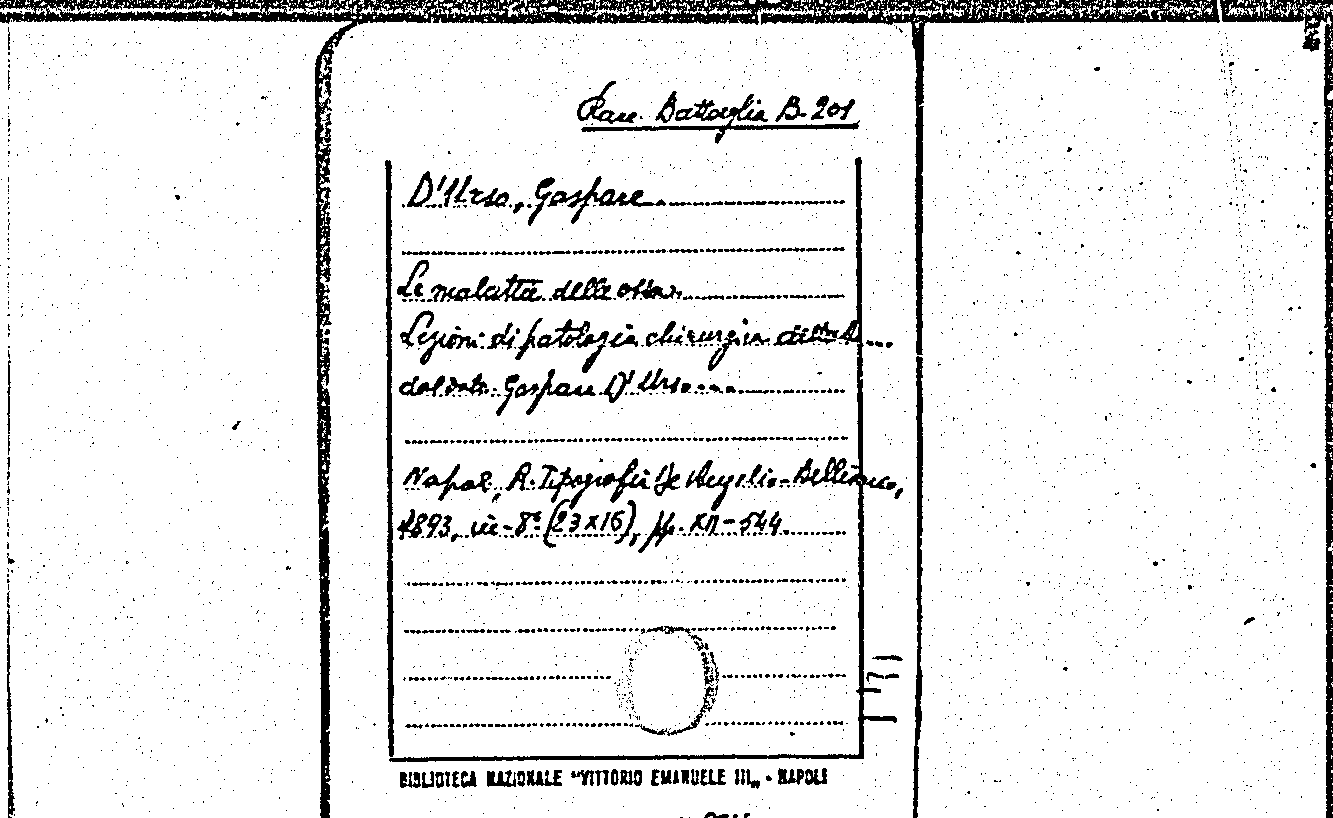 Racc. Battaglia B. 201
D'Urso, Gaspare
Le malattie delle ossa.
Lezioni di patologia chirurgica dettate
dal dott. Gaspare D'Urso....
Napoli, R. Tipografia De Angelis-Bellisario,
1893, in-8° (23x16), pp. XII-544.
BIBLIOTECA NAZIONALE "VITTORIO EMANUELE III„ - NAPOLI